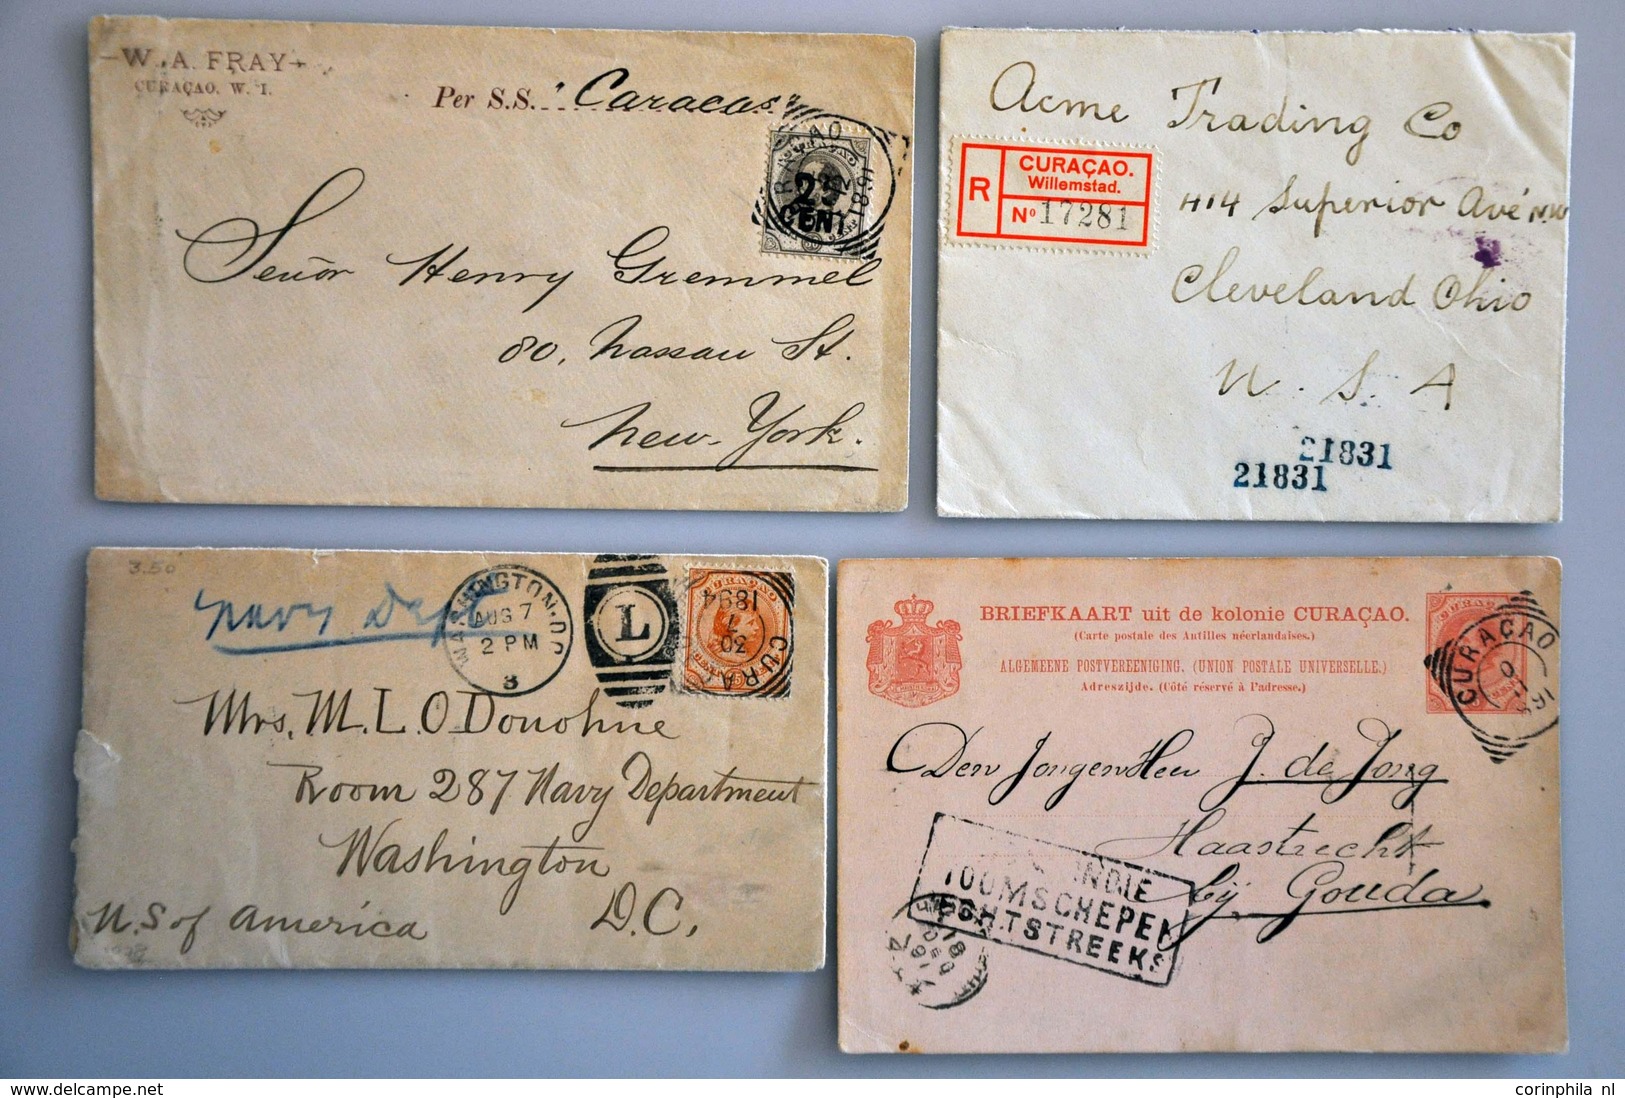 W. A. FRAY
CURAÇAO. W. I.
Per S.S. "Caracas"
CURAÇAO
1891
25
CENT
Señor Henry Gremmel
80, Nassau St.
New-York.
Acme Trading Co
R
CURAÇAO.
Willemstad.
Nº 17281
414 Superior Avé N.W
Cleveland Ohio
U. S. A
21831
21831
3.50
Navy Dept
WASHINGTON. D.C.
AUG 7
2 PM
3
L
CURAÇAO
30
7
1894
Mrs. M. L. O'Donohue
Room 287 Navy Department
Washington
D.C.
U.S of America
BRIEFKAART uit de kolonie CURAÇAO.
(Carte postale des Antilles néerlandaises.)
ALGEMEENE POSTVEREENIGING. (UNION POSTALE UNIVERSELLE.)
Adreszijde. (Côté réservé à l'adresse.)
CURAÇAO
CURAÇAO
Den Jongen Heer J. de Jong
Haastrecht
bij Gouda
INDIE
OOMSCHEPEN
CHTSTREEKS
18
DEC
91
www.delcampe.net
corinphila nl